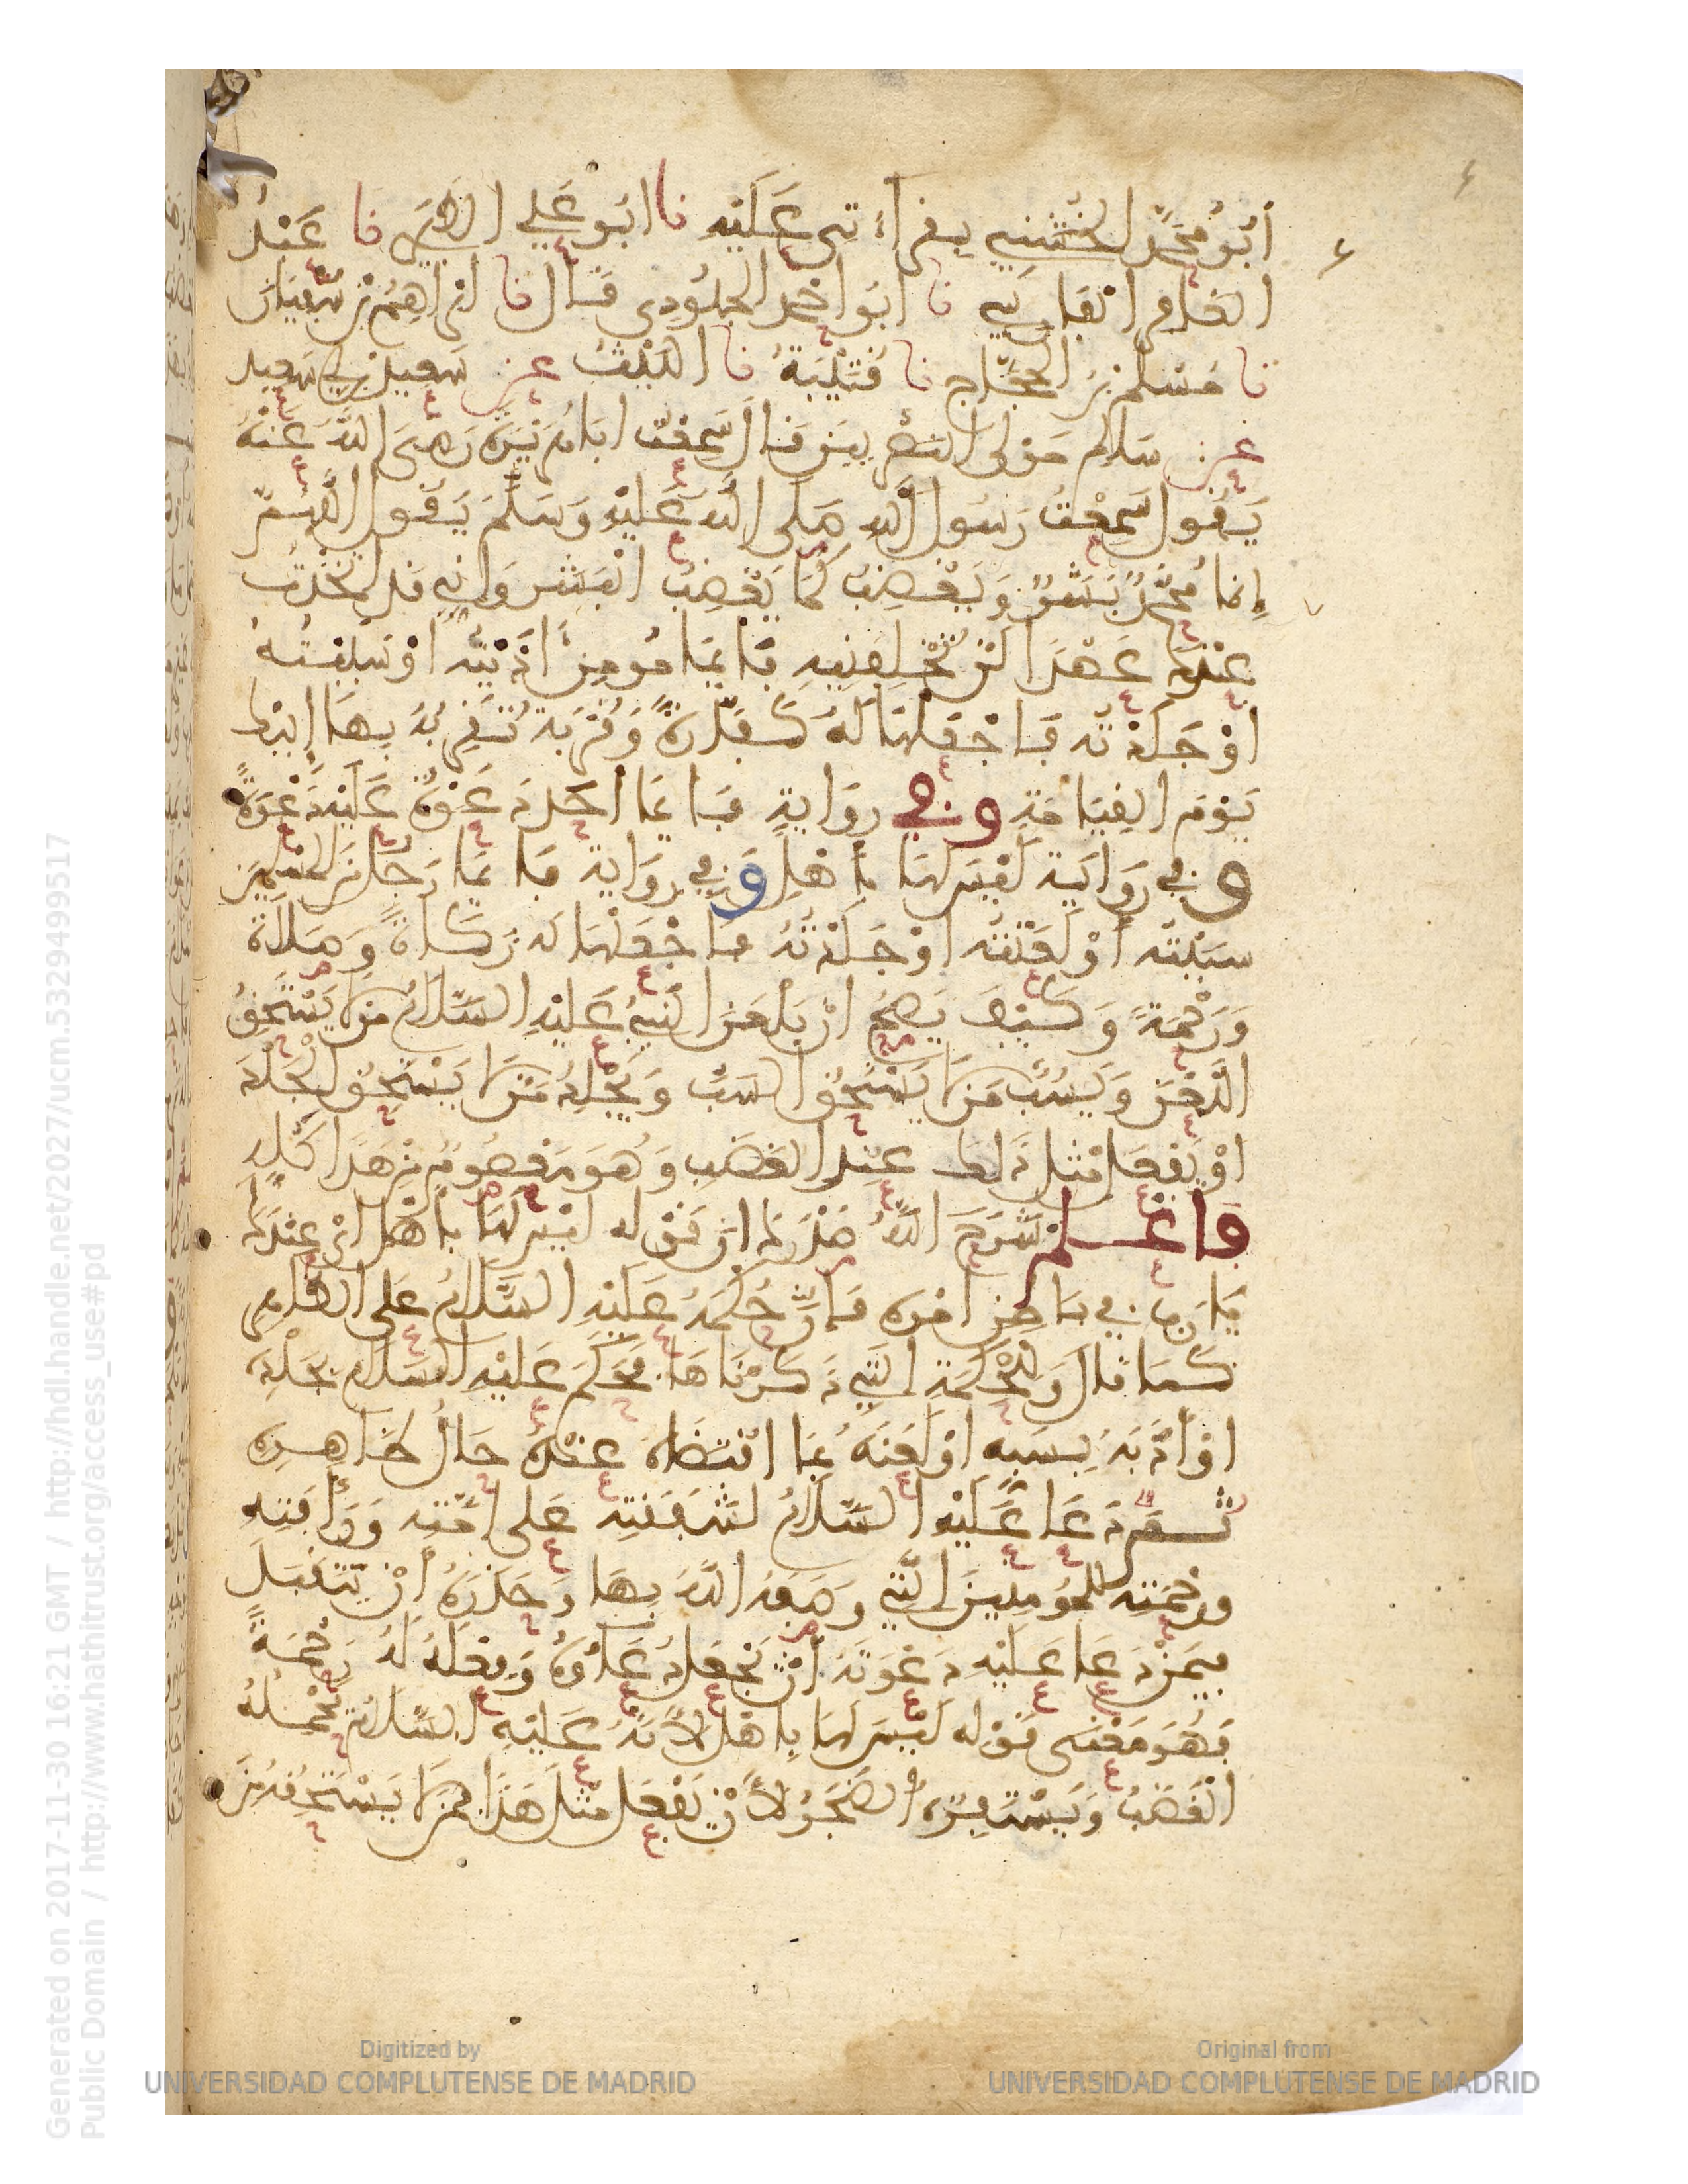 أَبُو مُحَمَّدٍ الخُشَنِي بِقِرَاءَتِي عَلَيْهِ نا ابُو عَلِي الطبري نا عَبْدُ
الغافِرِ الْفَارِسي نا ابُو احْمَد الجلُودِي قَال نا ابْراهِيمُ بْنُ سُفيَانَ
نا مُسْلم بْنُ الحَجَّاج نا قُتَيْبَةُ نا اللَّيْثُ عن سَعِيد بن ابي سَعِيد
عن سَالِم مَوْلى النصْرِيين قَال سَمِعْتُ ابَا هُرَيْرَةَ رَضِيَ اللَّهُ عَنْهُ
يَقُول سَمِعْتُ رَسُول اللَّهِ صَلى اللَّه عَلَيْهِ وَسَلَّمَ يَقُول اللَّهُمَّ
إِنما مُحَمَّدٌ بَشَرٌ وَيَغْضَبُ كَمَا يَغْضَبُ الْبَشَر وَإني قد اتخَذْتُ
عِنْدَكَ عَهْدَا لَنْ تُخْلِفَنِيهِ فَأَيُّمَا مُومِنٍ أَذَيْتُه اوْ سَبَبْتُهُ
اوْ جَلَدْتُه فَاجْعَلْهَا لَهُ كَفَّارَةً وَقُرْبَة تُقَرِّبُهُ بِهَا إِلَيْكَ
يَوْمَ القِيَامَةِ وفي رِوَايَةٍ فَأَيُّمَا أَحَدٍ دَعَوْتُ عَلَيْهِ دَعْوَةً
وفي رِوَايَة لَيْسَ لهَا بأَهْلٍ وَفي رِوَايَة فَأيُّمَا رَجُلٍ مِنَ المُسْلِمِينَ
سَبَبْتُه أَوْ لَعَنْتُه اوْ جَلَدْتُهُ فَاجْعَلْهَا لَه زَكَاةً وَصَلَاةً
وَرَحْمَةً وَكَيْفَ يَصِحُّ أنْ يَلْعَنَ النَّبيُّ عَلَيْهِ السَّلَامُ مَنْ لا يَسْتَحِقُّ
اللَّعْنَ وَيَسُبُّ مَنْ لا يَسْتَحِقُّ السَّبَّ وَيَجْلِدُ مَنْ لا يَسْتَحِقُّ الجَلْدَ
اوْ يَفعَل مِثْل ذَلِكَ عِنْدَ الغَضَب وَهُوَ مَعْصُومٌ مِنْ هَذَا كُلِّهِ
فاعْلم شَرَحَ اللَّهُ صَدْرَكَ انَّ قَوْله لَيْسَ لهَا بِأَهْل ايْ عِنْدَكَ
يَا رَب في بَاطِن امْرِه فَإِنَّ حُكْمَهُ عَلَيْهِ السَّلَامُ عَلى الظاهِر
كَمَا قَال وَلِلْحِكْمَةِ التي ذَكَرْنَاهَا فَحَكَمَ عَلَيْه السَّلام بجَلْدِهِ
اوْ أَدَّبَهُ بِسَبِّه اوْ لَعْنِهِ بمَا اقْتَضَاهُ عِنْدَهُ حَالُ ظَاهِرِهِ
ثُمَّ دَعَا عَلَيْه السَّلَامُ لِشَفَقَتِه عَلى أُمَّتِه وَرَأْفَتِهِ
ورَحْمَتِه لِلْمُومِنِينَ الَّتِي وَصَفَهُ اللَّهُ بِهَا وَحَذَرِهُ أنْ يَتَقَبَّلَ
فِيمَنْ دَعَا عَلَيْهِ دَعْوَتَهُ أنْ يَجْعَلَ دُعَاءَهُ وَفِعْلَهُ لَهُ رَحْمَةً
فَهُوَ مَعْنَى قَوْله لَيْسَ لهَا بِأهْل لَا أنَّهُ عَلَيْهِ السَّلَامُ يَحْمِلُهُ
الْغَضَبُ وَيَسْتَفِزُّهُ الضَّجَرُ لِأَنْ يَفْعَلَ مِثْلَ هَذَا بمَنْ لا يَسْتَحِقُّه مِنْ
Generated on 2017-11-30 16:21 GMT / http://hdl.handle.net/2027/ucm.5329499517
Public Domain / http://www.hathitrust.org/access_use#pd
Digitized by
UNIVERSIDAD COMPLUTENSE DE MADRID
Original from
UNIVERSIDAD COMPLUTENSE DE MADRID